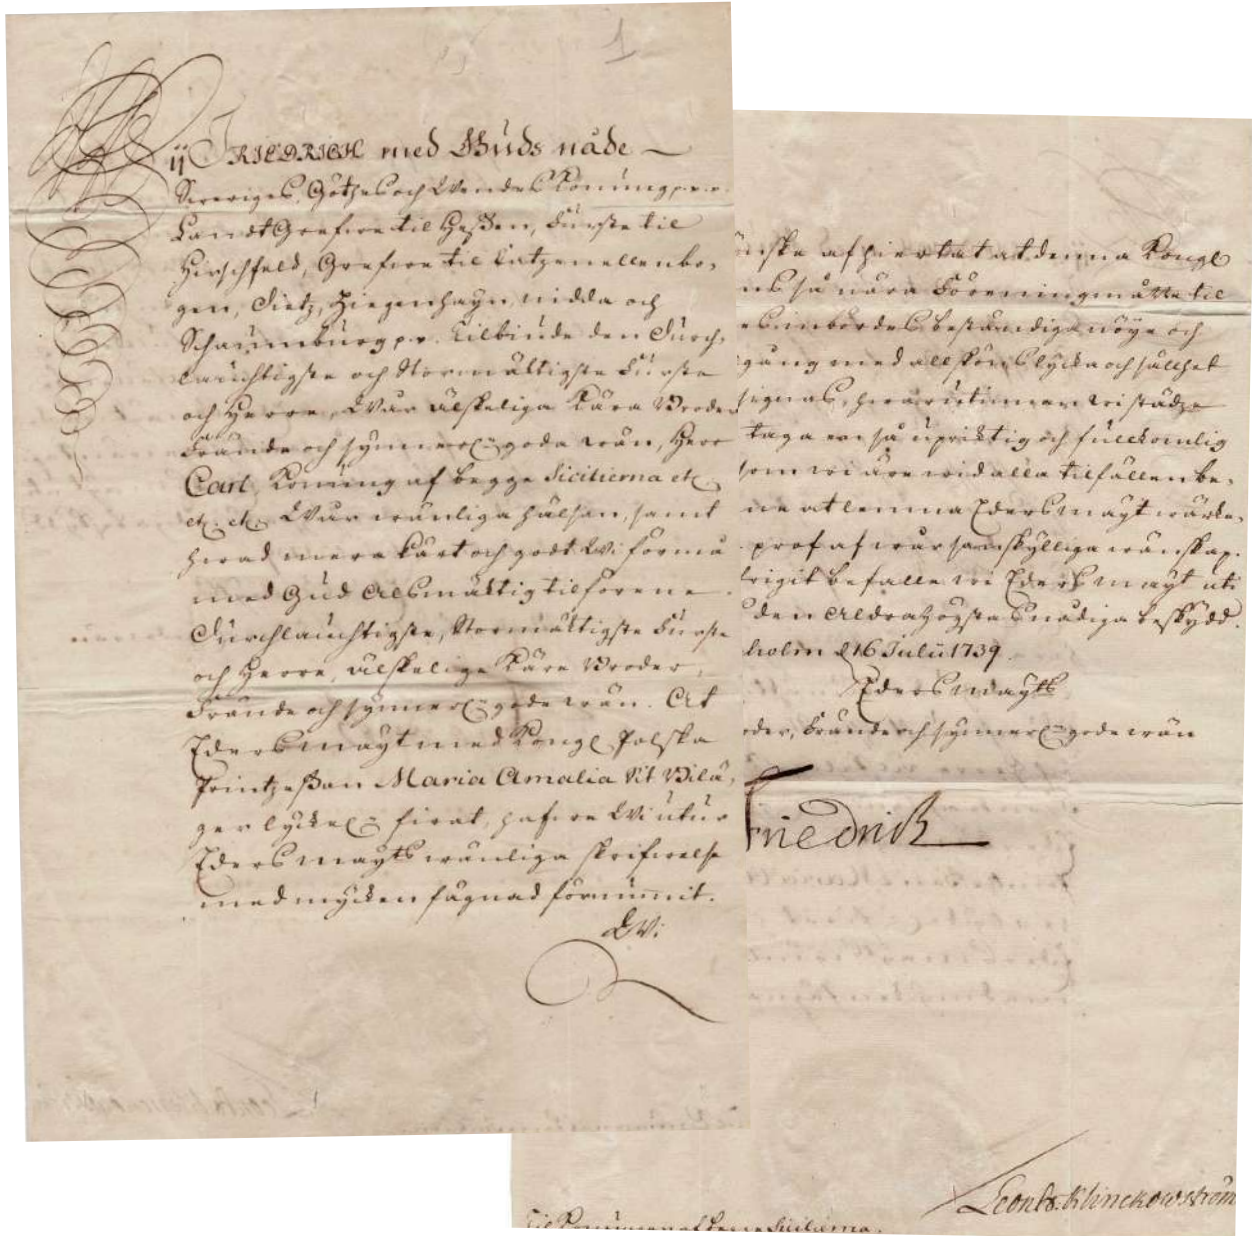 1
Wij FRIEDRICH med Guds nåde
Sweriges, Göthes och Wendes Konung p. p. p.
Landt Grefwe til Heßen, Furste til
Hirschfeld, Grefwe til Catzenellenbo-
gen, Dietz, Ziegenhayn nidda och
Schaumburg p. p. Tilbiude den Durch-
lauchtigste och Stormäktigste Furste
och Herre, Wår älskeliga Kära Broder
Frände och synnerl: gode wän, Herr
Carl, Konung af begge Sicilierna etc.
etc. etc. Wår wänliga hälsan, samt
hwad mera kärt och godt Wi förmå
med Gud Alsmäktig tilförene.
Durchlauchtigste, Stormäktigste Furste
och Herre, älskelige Käre Broder,
Frände och synnerl: gode wän. At
Eders Mayt med Kongl Polska
Printzeßan Maria Amalia sit Bilä-
ger lyckel: firat, hafwe Wi utur
Eders Mayts wänliga skrifwelse
med mycken fägnad förnummit.
Wi
önske af hiertat at denna Kongl
så nära Föreningmåtte til
inbördes beständiga nöye och
gång med all skiöns lycka och sällhet
signas, hwarutinnan wi städze
taga en så upricktig och fullkomlig
som wi äre wid alla tilfällen be-
ne at lemna Eders Mayt wärke-
prof af wår skylliga wänskap.
befalle wi Eders Mayt uti
den Aldrahögstas nådiga beskydd.
holm d 16 Julii 1739.
Eders Mayts
oder, Frände och synnerl: gode wän
Friedrich
Leonh: Klinckowström
Til Konungen af begge Sicilierna.